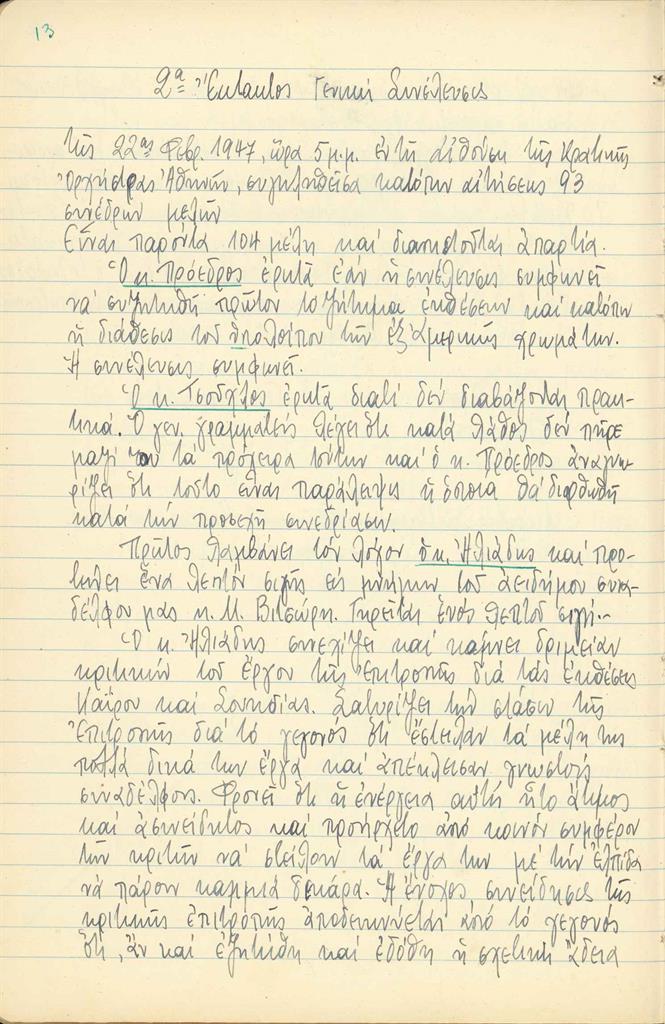 13
2α Ἔκτακτος Γενική Συνέλευσις
τῆς 22ας Φεβρ. 1947, ὥρα 5 μ.μ. ἐν τῇ αἰθούσῃ τῆς Κρατικῆς
Ὀρχήστρας Ἀθηνῶν, συγκληθεῖσα κατόπιν αἰτήσεως 93
συνέδρων μελῶν
Εἶναι παρόντα 104 μέλη καί διαπιστοῦται ἀπαρτία.
Ὁ κ. Πρόεδρος ἐρωτᾶ ἐάν ἡ συνέλευσις συμφωνεῖ
νά συζητηθῇ πρῶτον τό ζήτημα ἐκθέσεων καί κατόπιν
ἡ διάθεσις τοῦ ὑπολοίπου τῶν ἐξ Ἀμερικῆς χρωμάτων.
Ἡ συνέλευσις συμφωνεῖ.
Ὁ κ. ἐρωτᾶ διατί δέν διαβάζονται πρακ-
τικά. Ὁ γεν. γραμματεύς λέγει ὅτι κατά λάθος δέν πῆρε
μαζί του τά πρόχειρα τούτων καί ὁ κ. Πρόεδρος ἀναγνω-
ρίζει ὅτι τοῦτο εἶναι παράλειψις ἡ ὁποία θά διορθωθῇ
κατά τήν προσεχῆ συνεδρίασιν.
Πρῶτος λαμβάνει τόν λόγον ὁ κ. Ἠλιάδης καί προ-
τείνει ἑνα λεπτόν σιγῆς εἰς μνήμην τοῦ ἀειδήμου συνα-
δέλφου μας κ. Μ. Βιτσώρη. Τηρεῖται ἑνός λεπτοῦ σιγή.-
Ὁ κ. Ἠλιάδης συνεχίζει καί κάμνει δριμεῖαν
κριτικήν τοῦ ἔργου τῆς ἐπιτροπῆς διά τάς ἐκθέσεις
Καΐρου καί Σουηδίας. Σατυρίζει τήν στάσιν τῆς
Ἐπιτροπῆς διά τό γεγονός ὅτι ἔστειλαν τά μέλη της
πολλά δικά των ἔργα καί ἀπέκλεισαν γνωστούς
συναδέλφους. Φρονεῖ ὅτι ἡ ἐνέργεια αὐτή ἦτο ἄτιμος
καί ἀσυνείδητος καί προήρχετο ἀπό κοινόν συμφέρον
τῶν κριτῶν νά στείλουν τά ἔργα των μέ τήν ἐλπίδα
νά πάρουν καμμιά δεκάρα. Ἡ ἔνοχος συνείδησις τῆς
κριτικῆς ἐπιτροπῆς ἀποδεικνύεται ἀπό τό γεγονός
ὅτι, ἄν καί ἐζητήθη καί ἐδόθη ἡ σχετική ἄδεια